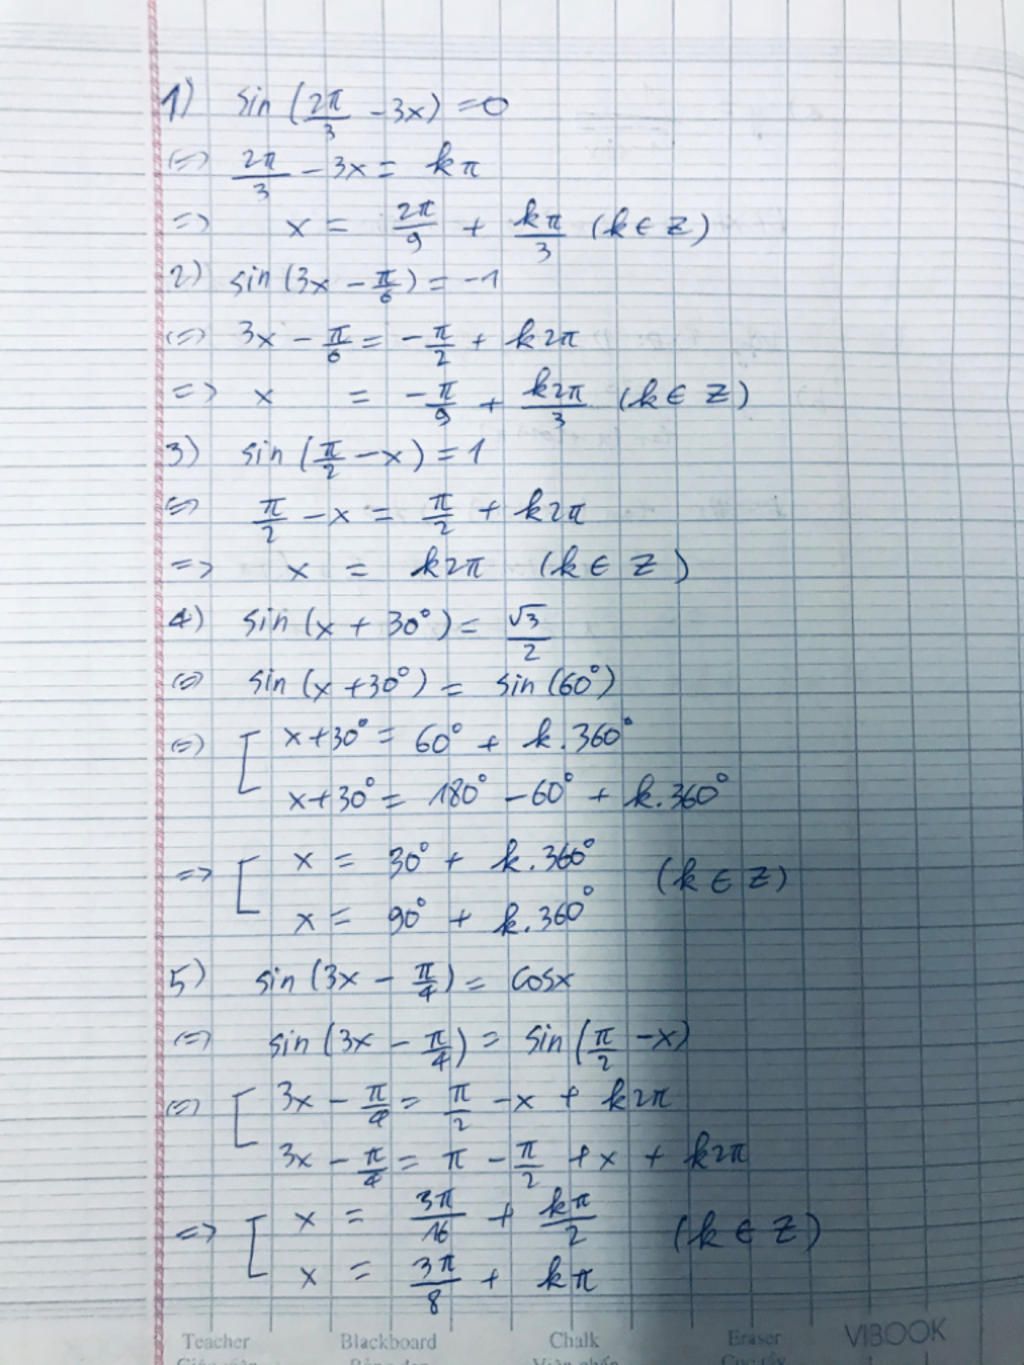 1) sin (2π/3 - 3x) = 0
(=) 2π/3 - 3x = kπ
=> x = 2π/9 + kπ/3 (k ∈ Z)
2) sin (3x - π/6) = -1
(=) 3x - π/6 = -π/2 + k2π
=> x = -π/9 + k2π/3 (k ∈ Z)
3) sin (π/2 - x) = 1
(=) π/2 - x = π/2 + k2π
=> x = k2π (k ∈ Z)
4) sin (x + 30°) = √3/2
(=) sin (x + 30°) = sin (60°)
(=) [ x + 30° = 60° + k.360°
x + 30° = 180° - 60° + k.360°
=> [ x = 30° + k.360° (k ∈ Z)
x = 90° + k.360°
5) sin (3x - π/4) = cosx
(=) sin (3x - π/4) = sin (π/2 - x)
(=) [ 3x - π/4 = π/2 - x + k2π
3x - π/4 = π - π/2 + x + k2π
=> [ x = 3π/16 + kπ/2 (k ∈ Z)
x = 3π/8 + kπ
Teacher Blackboard Chalk Eraser VIBOOK